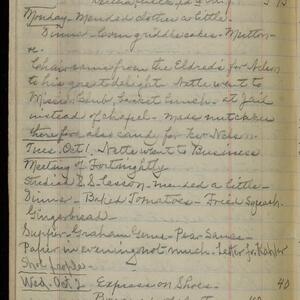 Monday - Mended clothes a little.
Dinner - Corn griddle cakes - Mutton -
Chair came from the Eldred's for Nelson
to his great delight. Nette went to
Mission Club, basket lunch - at Jail
instead of chapel. Made nut cakes
therefor also candy for Nelson.
Tues. Oct 1. Nette went to Business
Meeting of Fortnightly
Studied S. S. Lesson - mended a little -
Dinner - Baked Tomatoes - Fried Squash -
Gingerbread -
Supper - Graham Gems - Pear Sauce -
Paper in evening not much - Letter for
Wed. Oct 2 Express on Shoes - 40